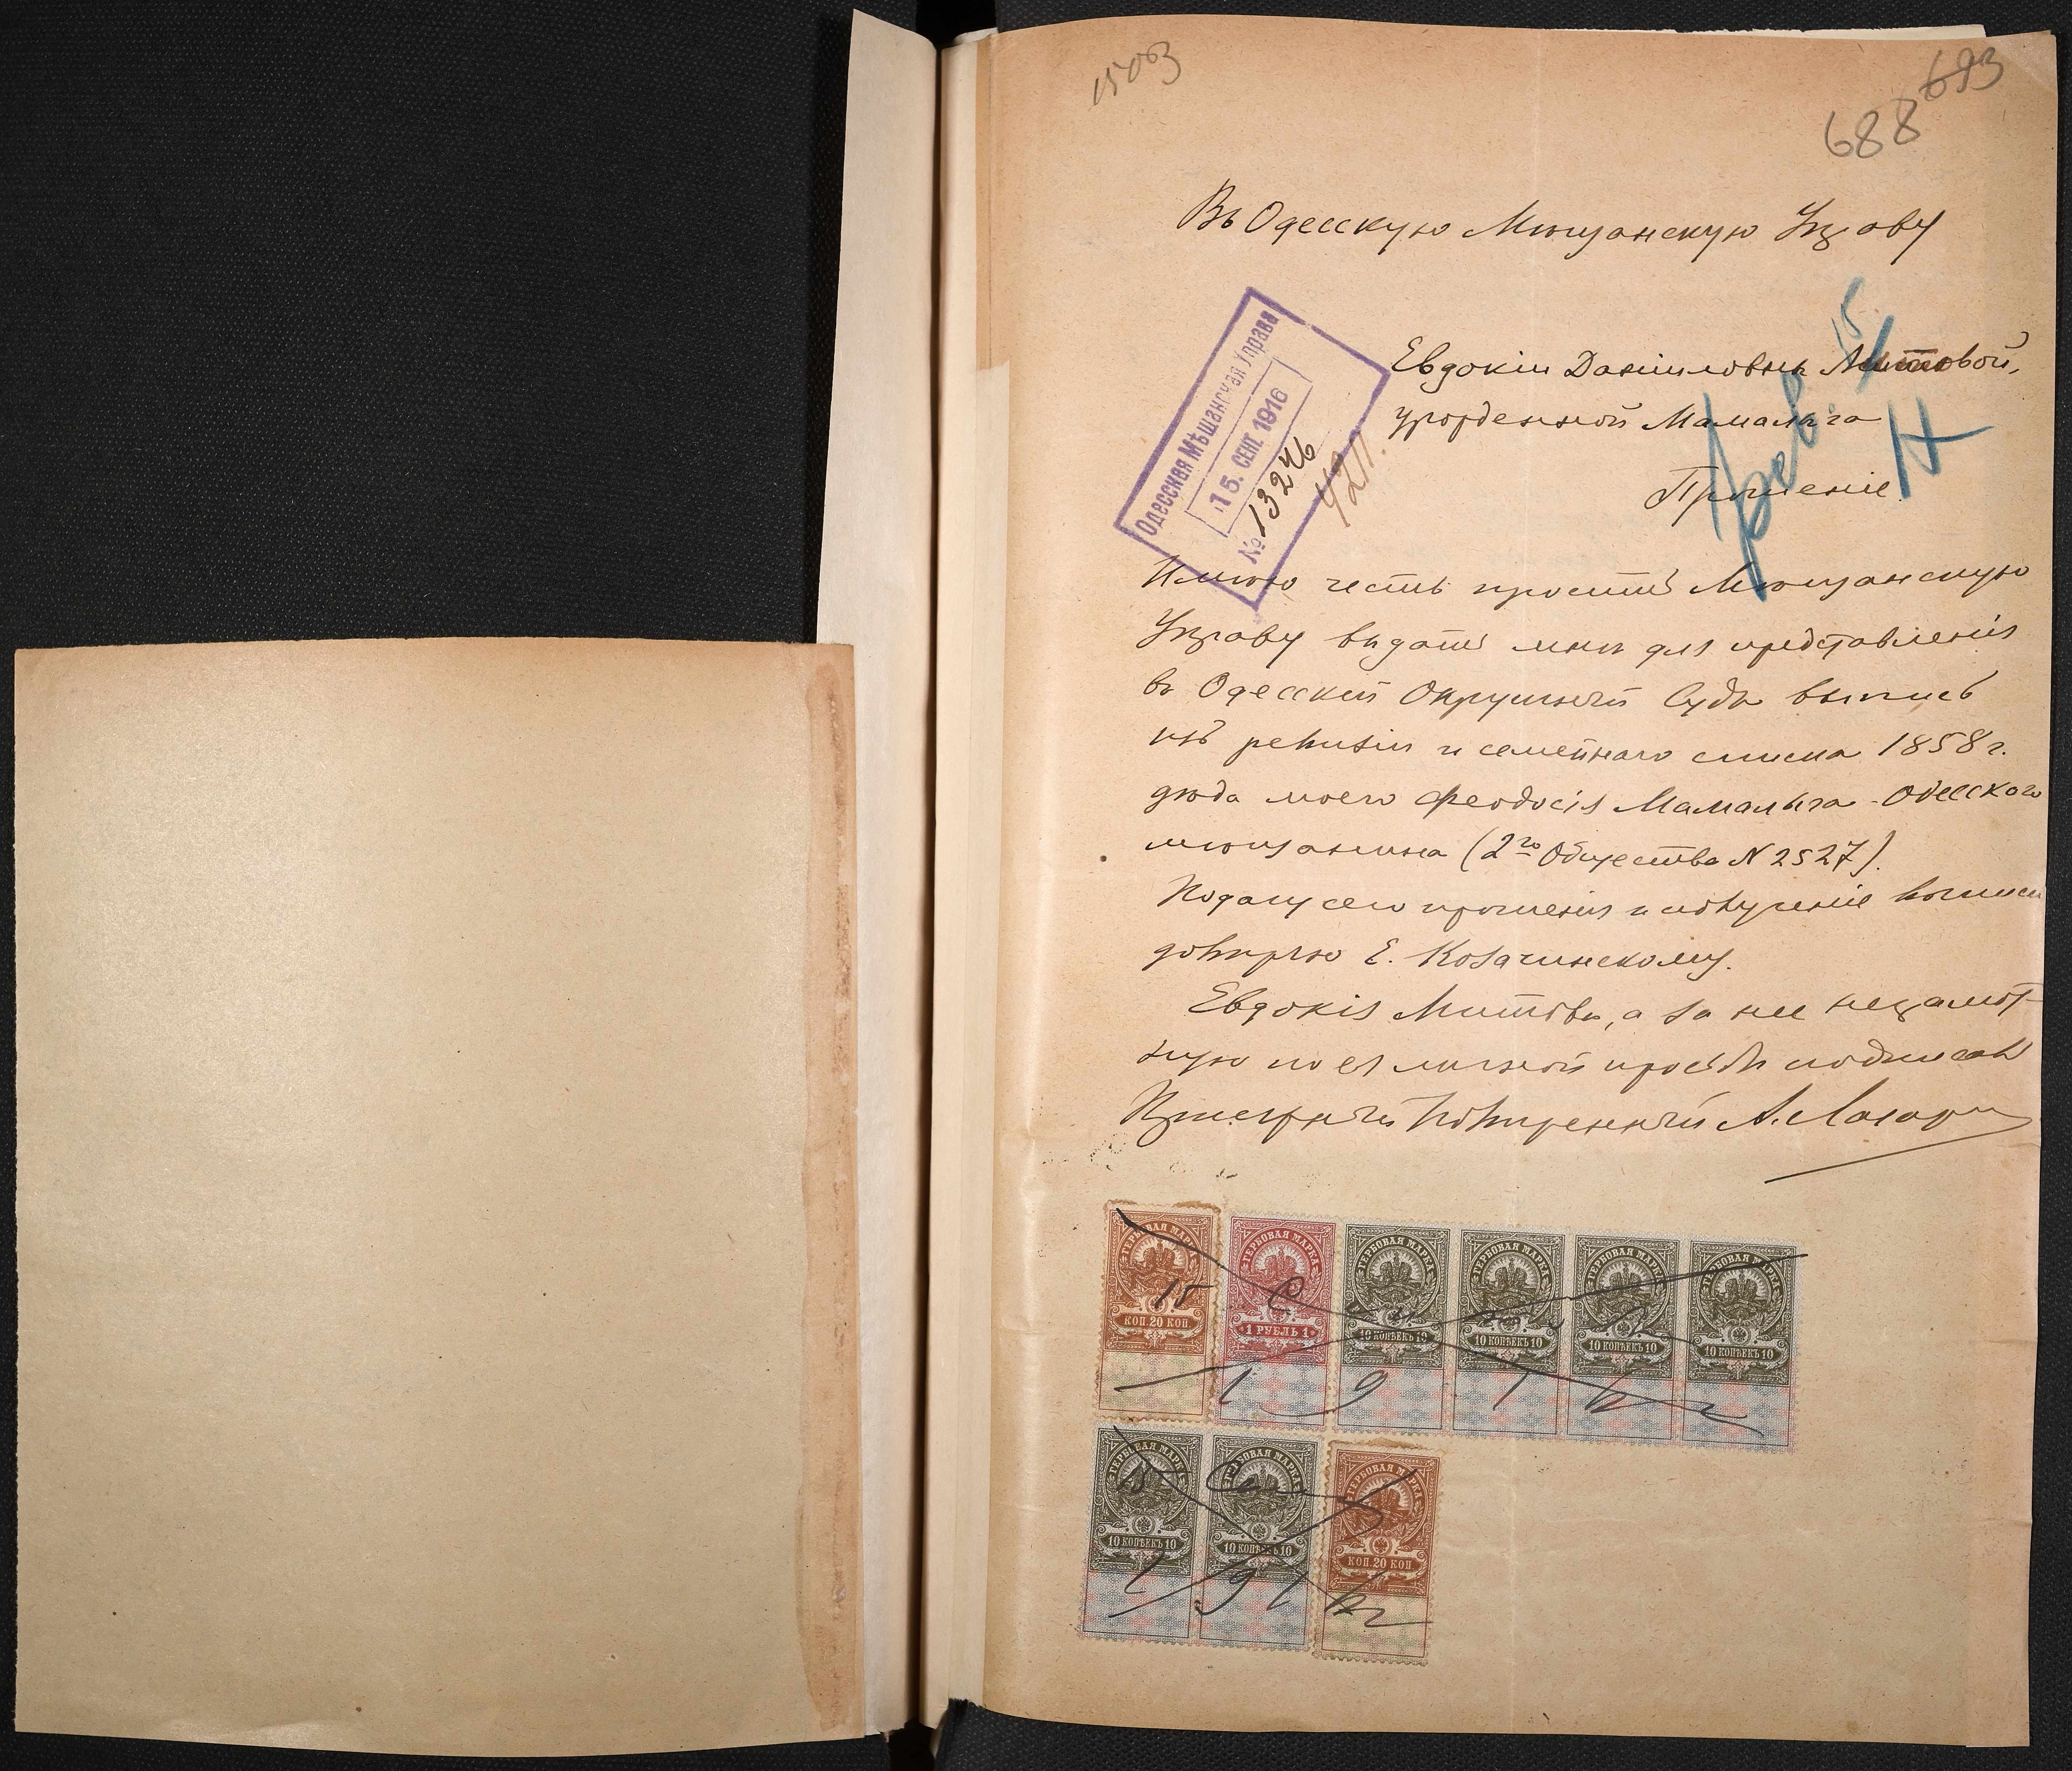 15003
693
688
Въ Одесскую Мѣщанскую Управу
Одесская Мѣщанская Управа
15. СЕН. 1916
№ 13246
Евдокіи Даніиловны Митовой,
урожденной Мамалыга
Прошеніе.
Имѣю честь просить Мѣщанскую
Управу выдать мнѣ для представленія
въ Одесскій Окружный Судъ выпись
изъ ревизіи и семейнаго списка 1858 г.
дѣда моего Феодосія Мамалыга - Одесскаго
мѣщанина (2го Общества N 2527).
Подачу сего прошенія и полученіе выписи
довѣряю Е. Козачинскому.
Евдокія Митова, а за нее неграмот-
ную по ея личной просьбѣ подписалъ
Присяжный Повѣренный А.
ГЕРБОВАЯ МАРКА
КОП. 20 КОП.
ГЕРБОВАЯ МАРКА
1 РУБЛЬ 1
ГЕРБОВАЯ МАРКА
10 КОПѢЕКЪ 10
ГЕРБОВАЯ МАРКА
10 КОПѢЕКЪ 10
ГЕРБОВАЯ МАРКА
10 КОПѢЕКЪ 10
ГЕРБОВАЯ МАРКА
10 КОПѢЕКЪ 10
15
1916 г
ГЕРБОВАЯ МАРКА
10 КОПѢЕКЪ 10
ГЕРБОВАЯ МАРКА
10 КОПѢЕКЪ 10
ГЕРБОВАЯ МАРКА
КОП. 20 КОП
15 Сен
1916 г